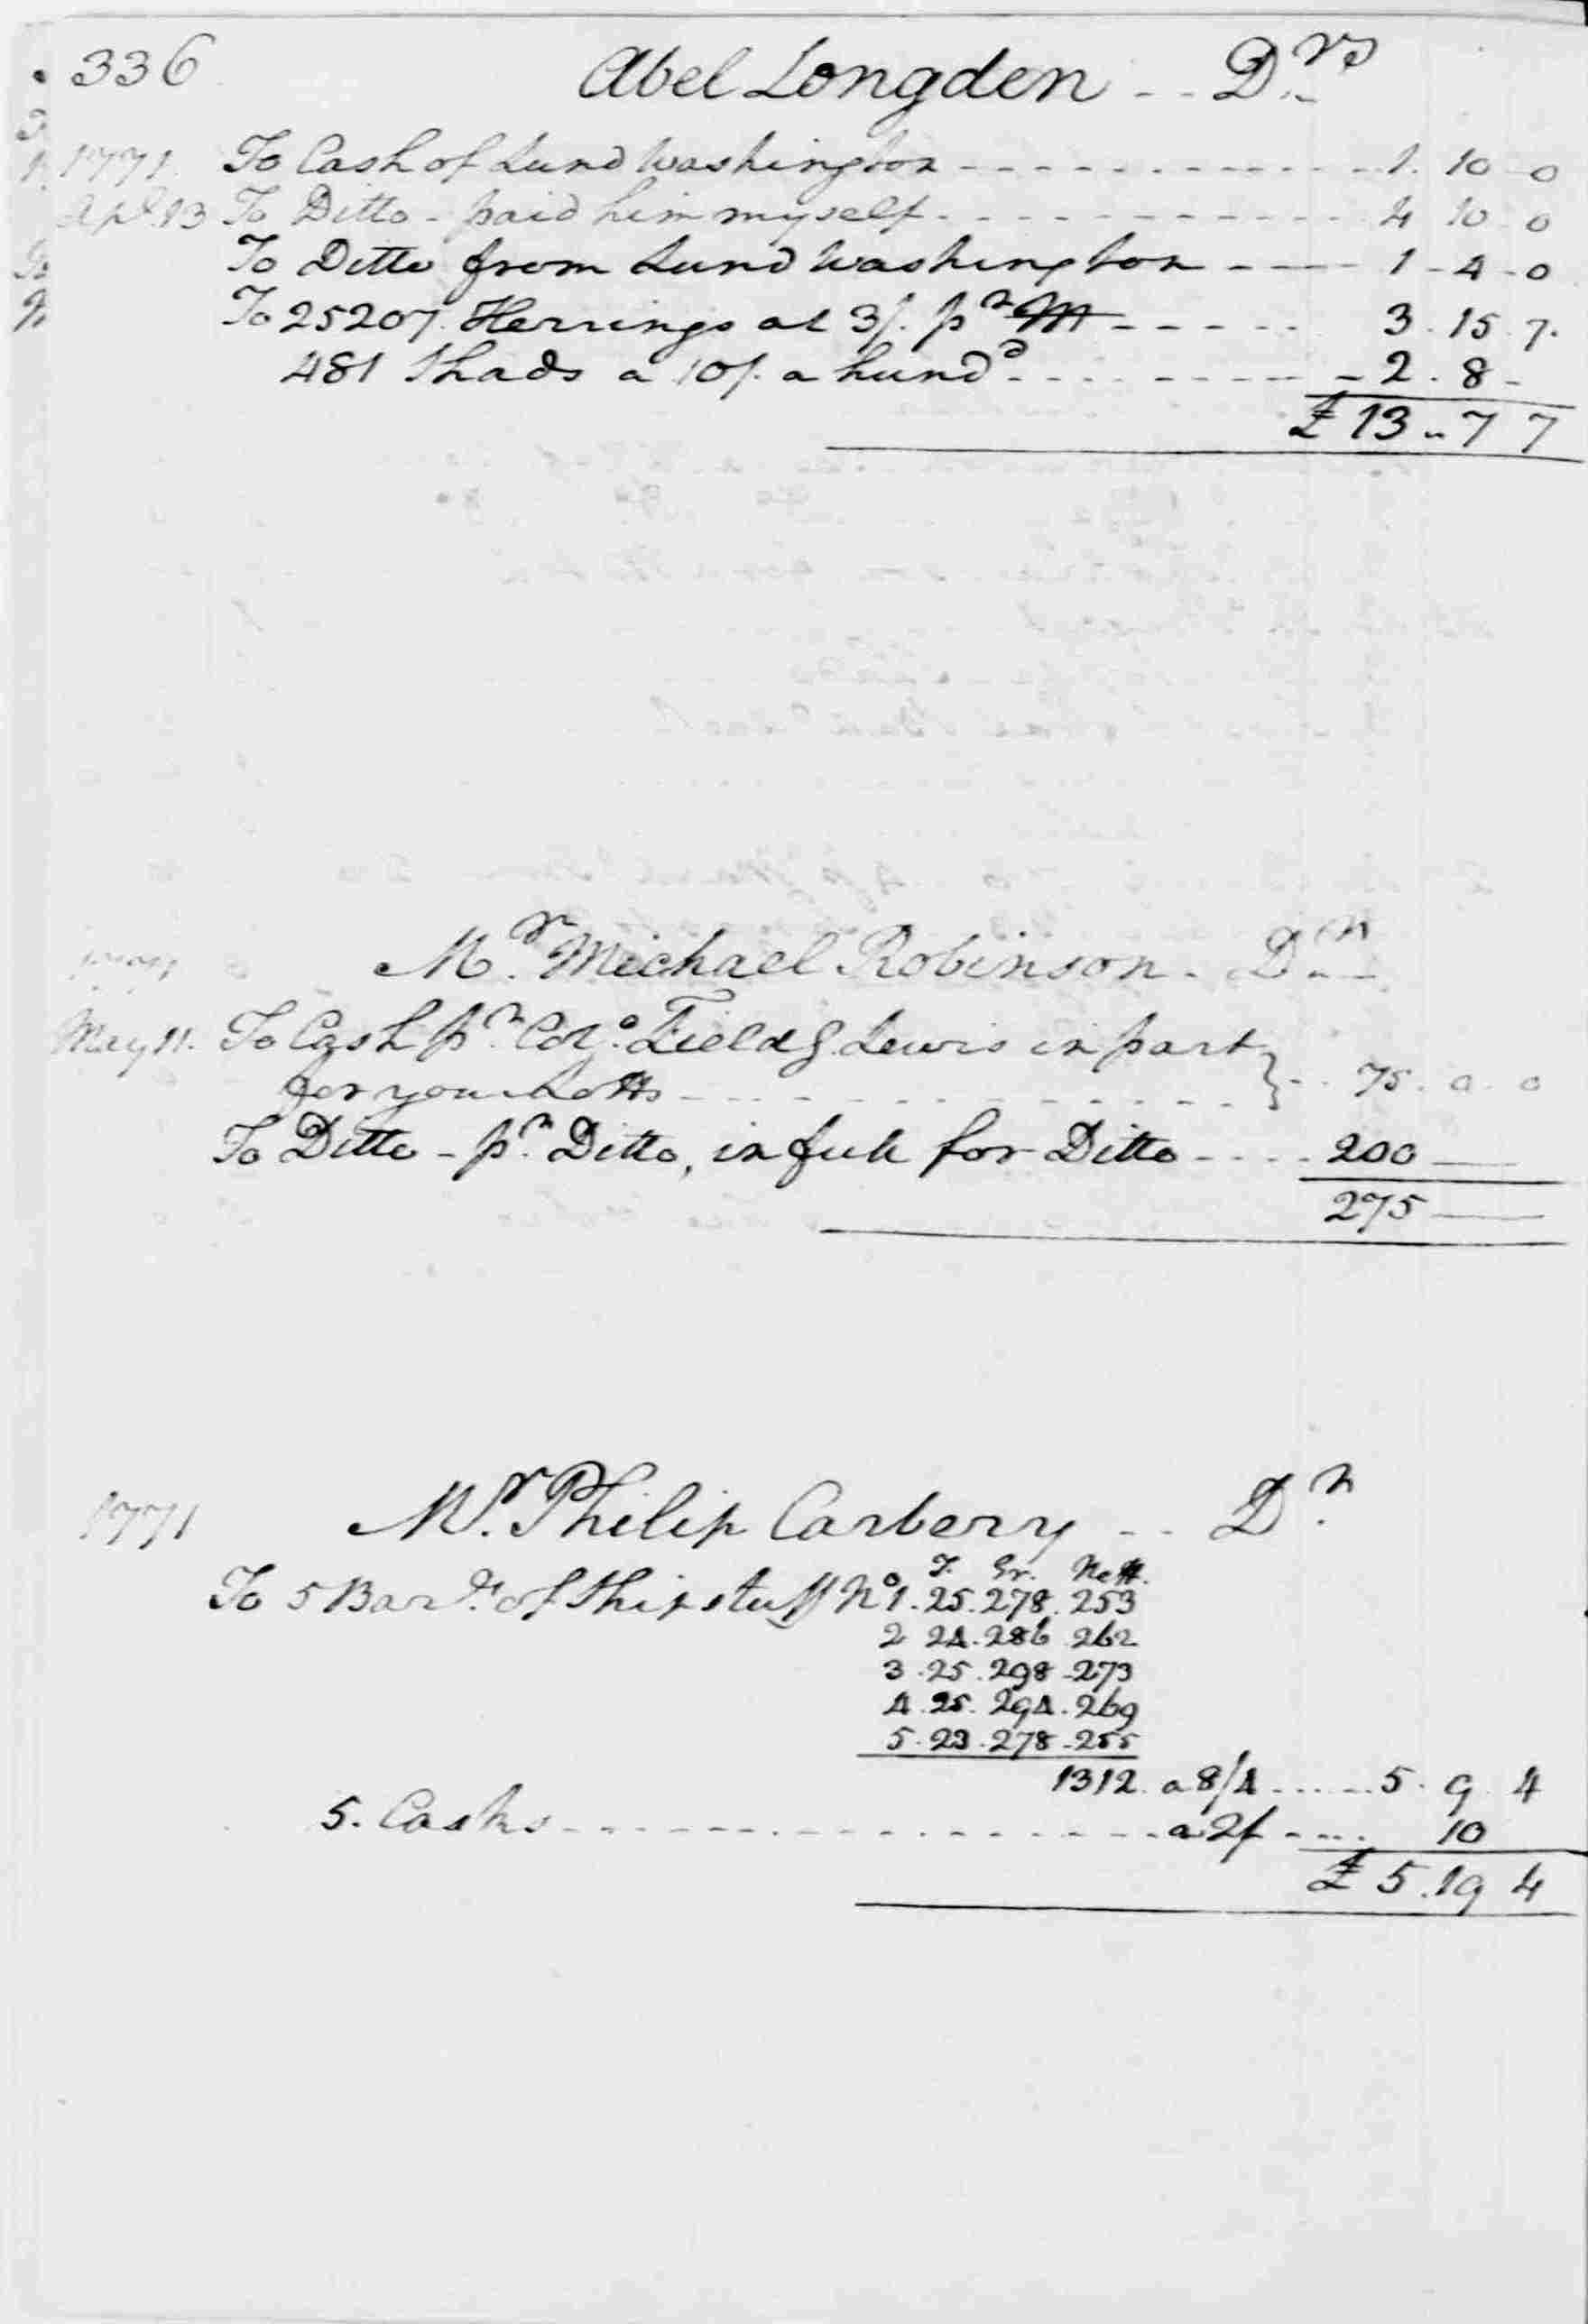 336
Abel Longden -- Drs
1771. To Cash of Lund Washington - - - 1. 10 - 0
Apl 13 To Ditto - paid him myself - - - 4 10 - 0
To Ditto from Lund Washington - - - 1 - 4 - 0
To 25207. Herrings at 3/. pr M - - - 3. 15. 7.
481 Shads a 10/. a hundd - - - 2. 8 -
£ 13 .. 7 7
Mr. Michael Robinson - Dr
May 11. To Cash pr. Colo. Fieldg. Lewis in part } - - 75. 0. 0
for your Lotts - - -
To Ditto - pr. Ditto, in full for Ditto - - - 200 —
275 —
1771 Mr. Philip Carbery -- Dr.
T. Gr. Nett.
To 5 Barrls. of Shipstuff No 1. 25. 278. 253
2 24. 286 262
3. 25. 298 - 273
4. 25. 294. 269
5. 23. 278 - 255
1312. a 8/4 ..... 5. 9. 4
5. Casks - - - a 2/ - ... 10
£ 5. 19 4